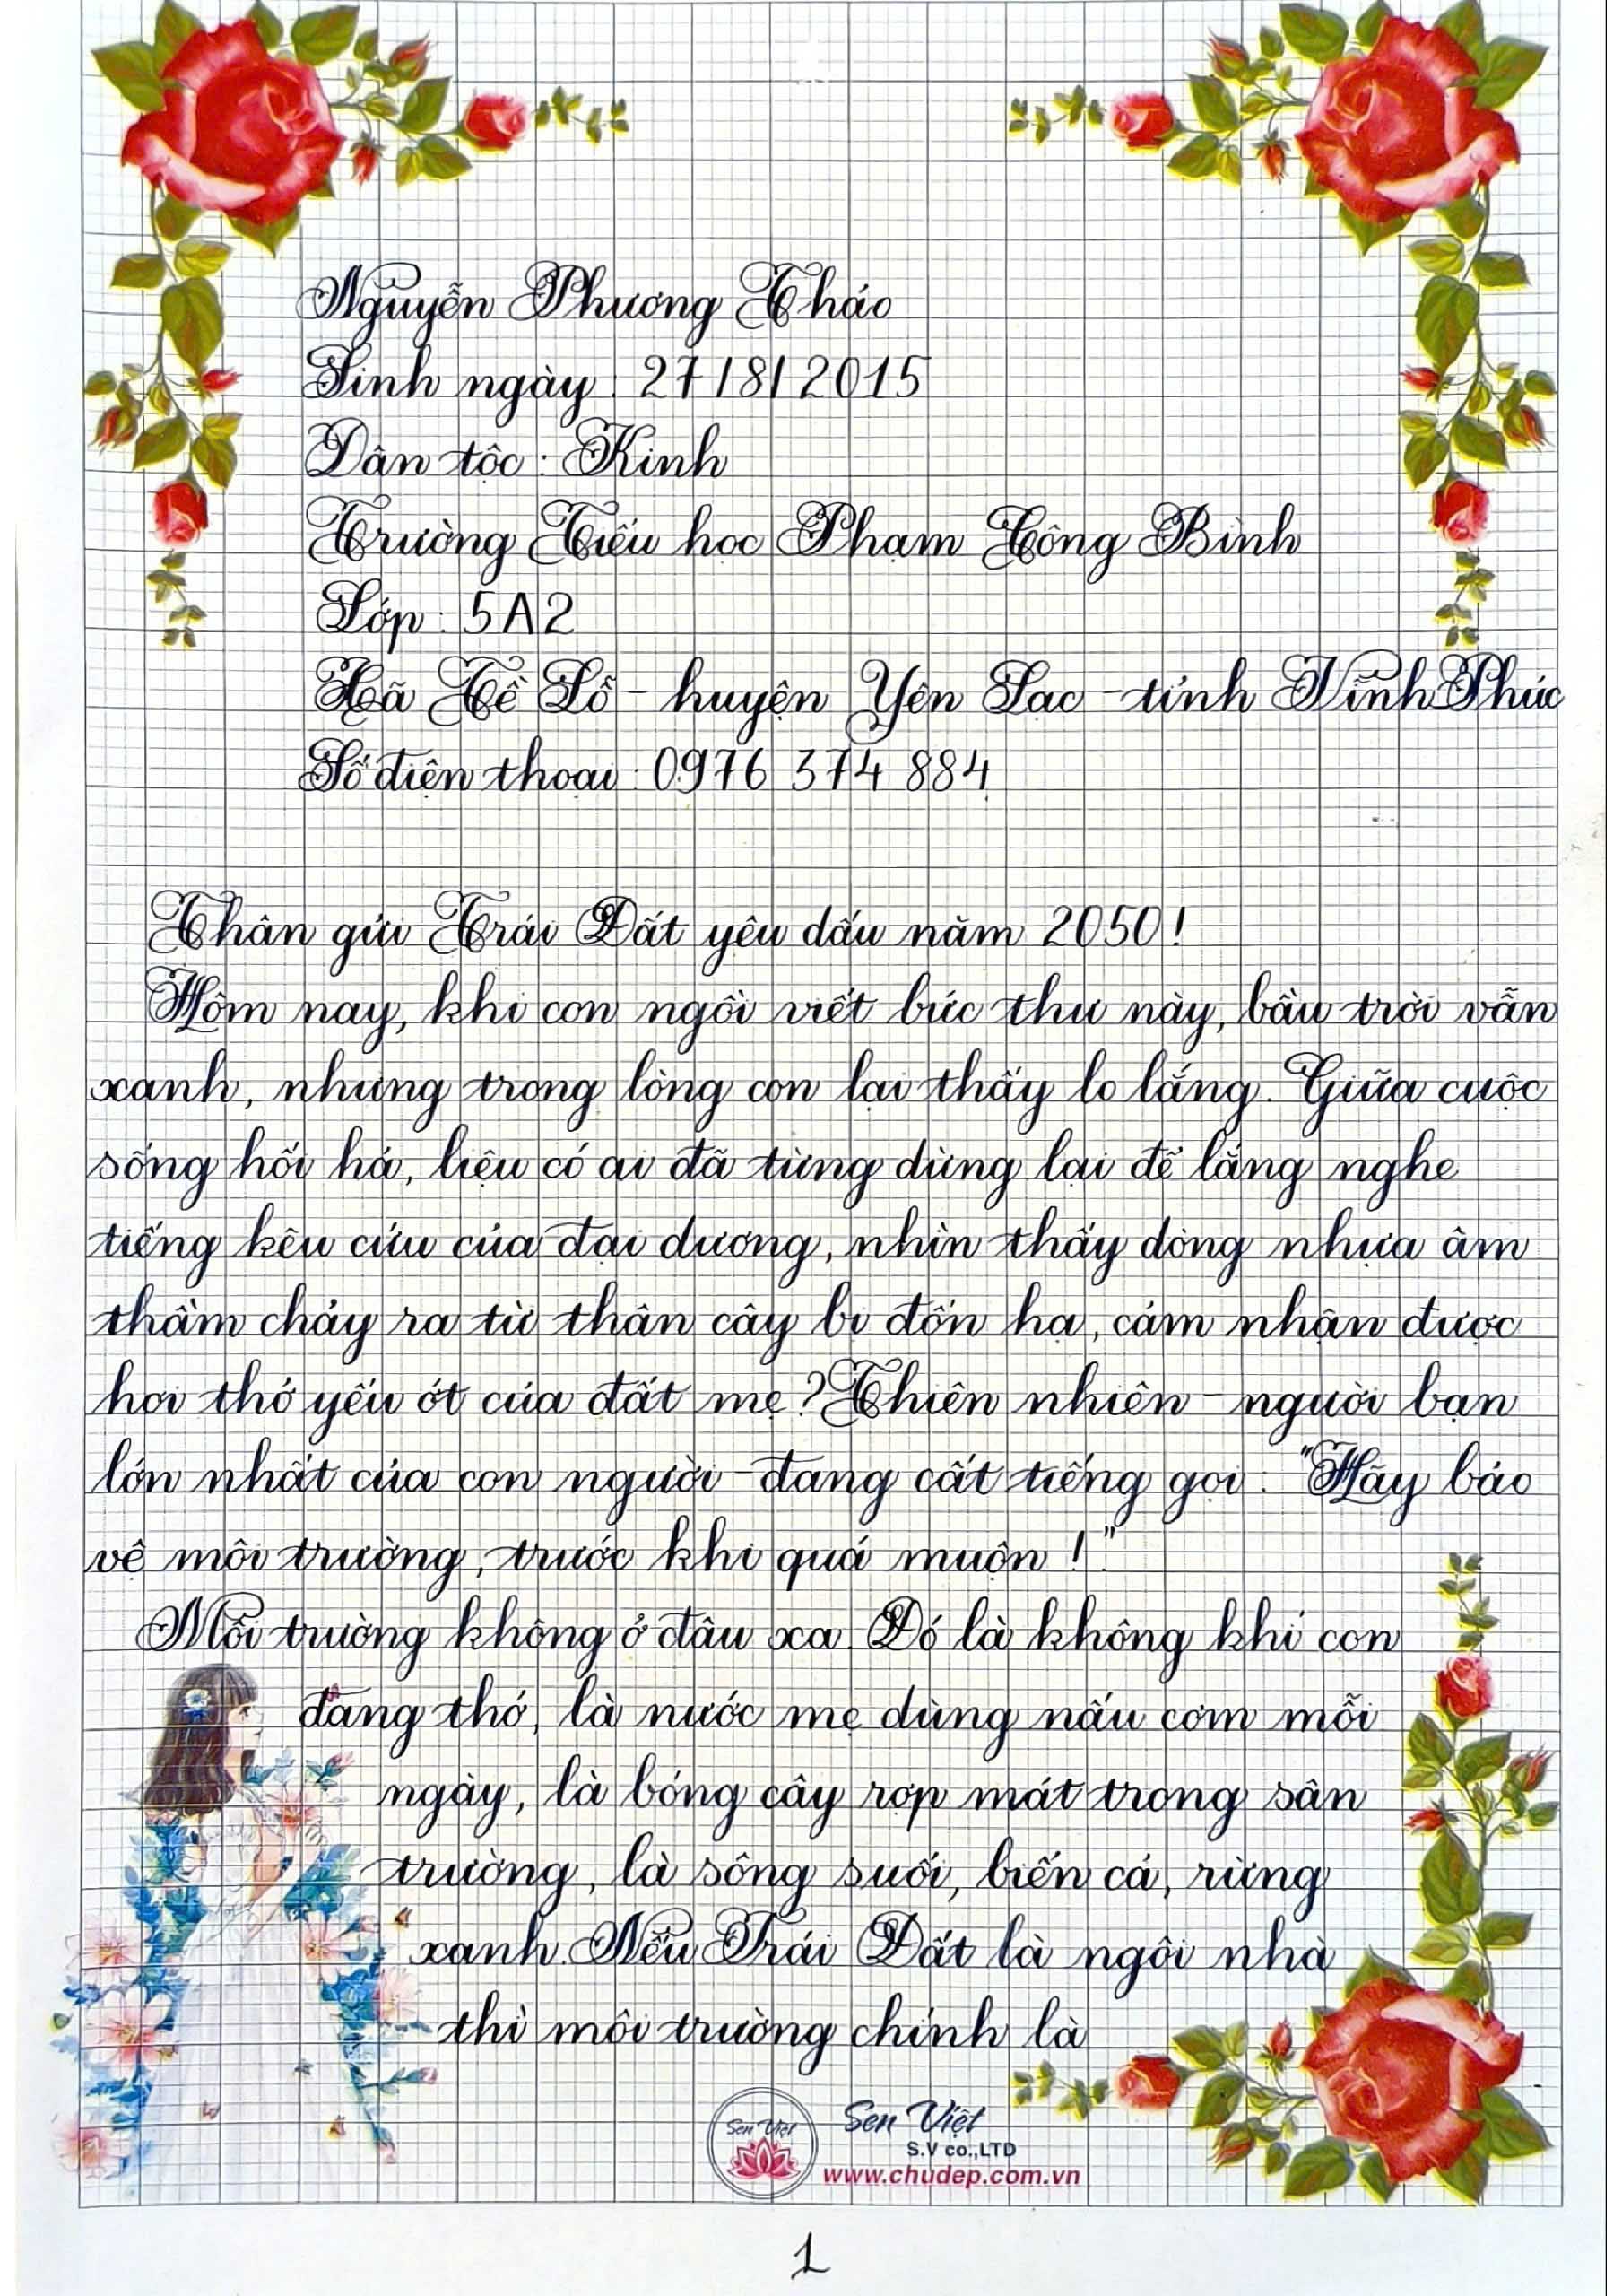 Nguyễn Phương Thảo
Sinh ngày : 27/8/2015
Dân tộc : Kinh
Trường Tiểu học Phạm Công Bình
Lớp : 5A2
Xã Tề Lỗ - huyện Yên Lạc - tỉnh Vĩnh Phúc
Số điện thoại : 0976 374 884
Thân gửi Trái Đất yêu dấu năm 2050!
Hôm nay, khi con ngồi viết bức thư này, bầu trời vẫn
xanh, nhưng trong lòng con lại thấy lo lắng. Giữa cuộc
sống hối hả, liệu có ai đã từng dừng lại để lắng nghe
tiếng kêu cứu của đại dương, nhìn thấy dòng nhựa âm
thầm chảy ra từ thân cây bị đốn hạ, cảm nhận được
hơi thở yếu ớt của đất mẹ? Thiên nhiên - người bạn
lớn nhất của con người - đang cất tiếng gọi : "Hãy bảo
vệ môi trường, trước khi quá muộn !."
Môi trường không ở đâu xa. Đó là không khí con
đang thở, là nước mẹ dùng nấu cơm mỗi
ngày, là bóng cây rợp mát trong sân
trường, là sông suối, biển cả, rừng
xanh. Nếu Trái Đất là ngôi nhà
thì môi trường chính là
Sen Việt
Sen Việt
S.V co.,LTD
www.chudep.com.vn
1